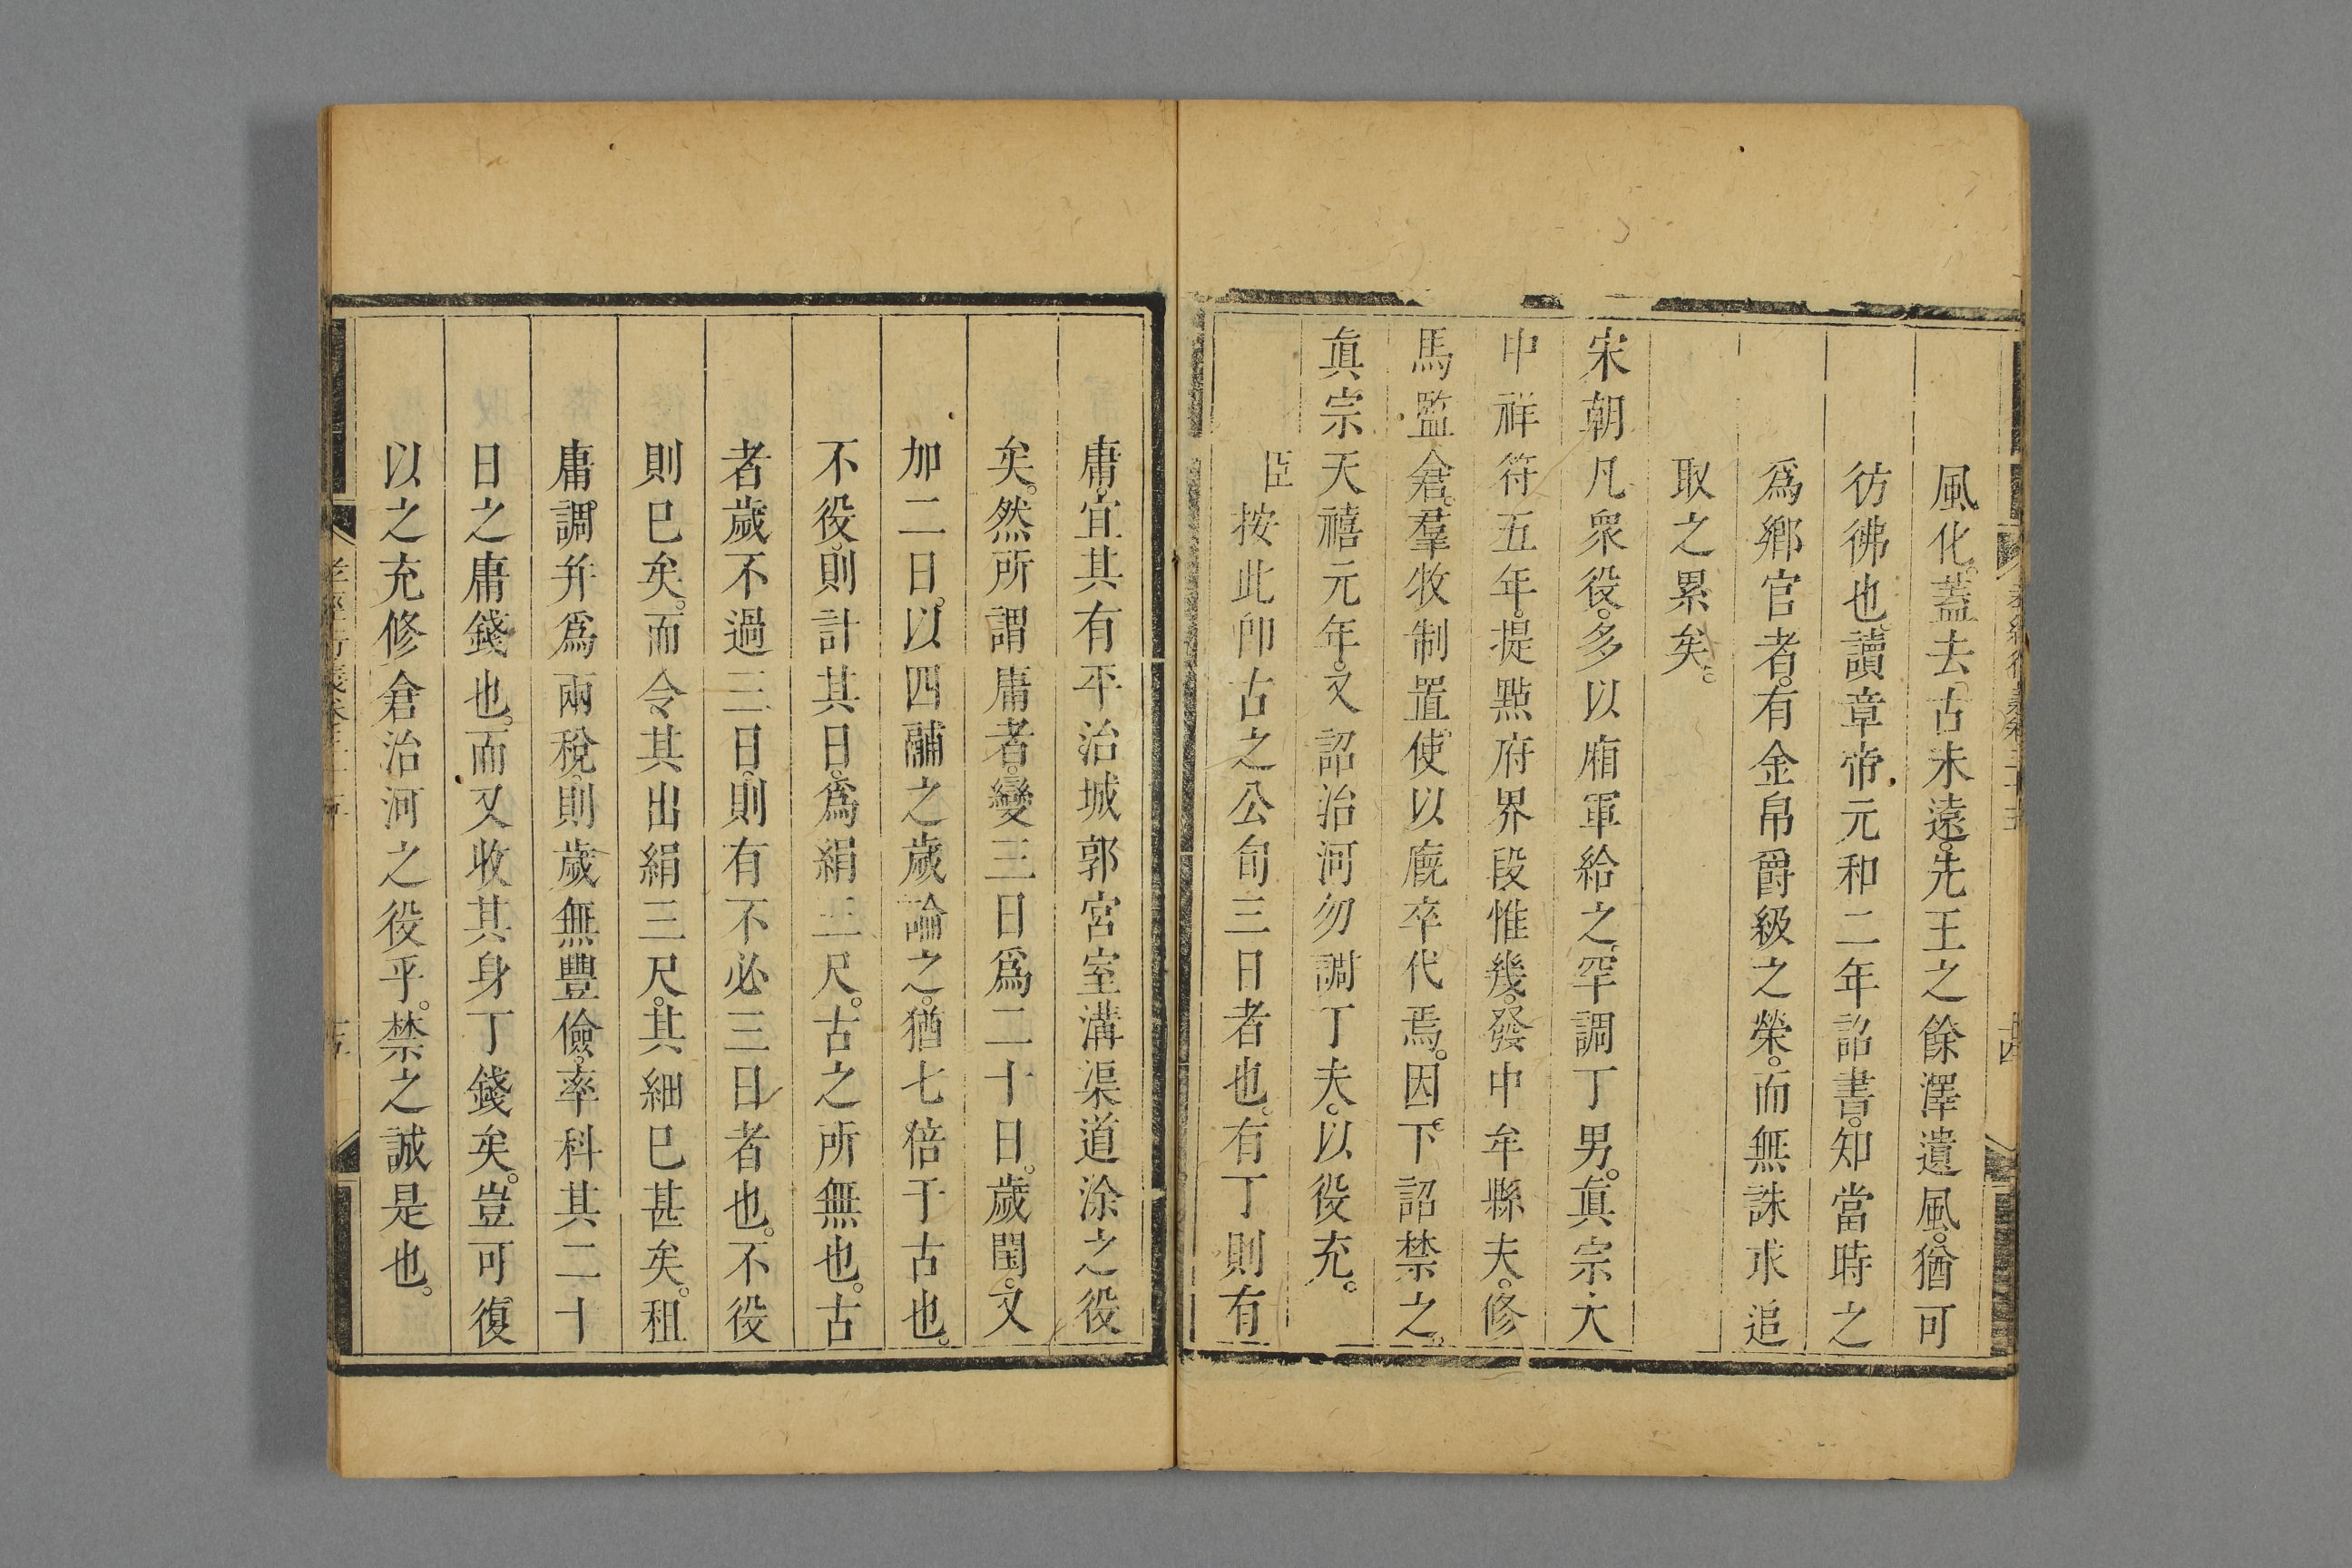 風化。蓋去古未遠。先王之餘澤遺風。猶可
彷彿也。讀章帝元和二年詔書。知當時之
爲鄉官者。有金帛爵級之榮。而無誅求追
取之累矣。
宋朝凡衆役。多以廂軍給之。罕調丁男。眞宗大
中祥符五年。提點府界段惟幾。發中牟縣夫。修
馬監倉。羣牧制置使以廐卒代焉。因下詔禁之。
眞宗天禧元年。又詔治河勿調丁夫。以役充。
臣按此卽古之公旬三日者也。有丁則有
庸。宜其有平治城郭宮室溝渠道涂之役
矣。然所謂庸者。變三日爲二十日。歲閏。又
加二日。以四鬴之歲論之。猶七倍于古也。
不役。則計其日。爲絹三尺。古之所無也。古
者歲不過三日。則有不必三日者也。不役
則已矣。而令其出絹三尺。其細已甚矣。租
庸調并爲兩稅。則歲無豐儉。率科其二十
日之庸錢也。而又收其身丁錢矣。豈可復
以之充修倉治河之役乎。禁之誠是也。